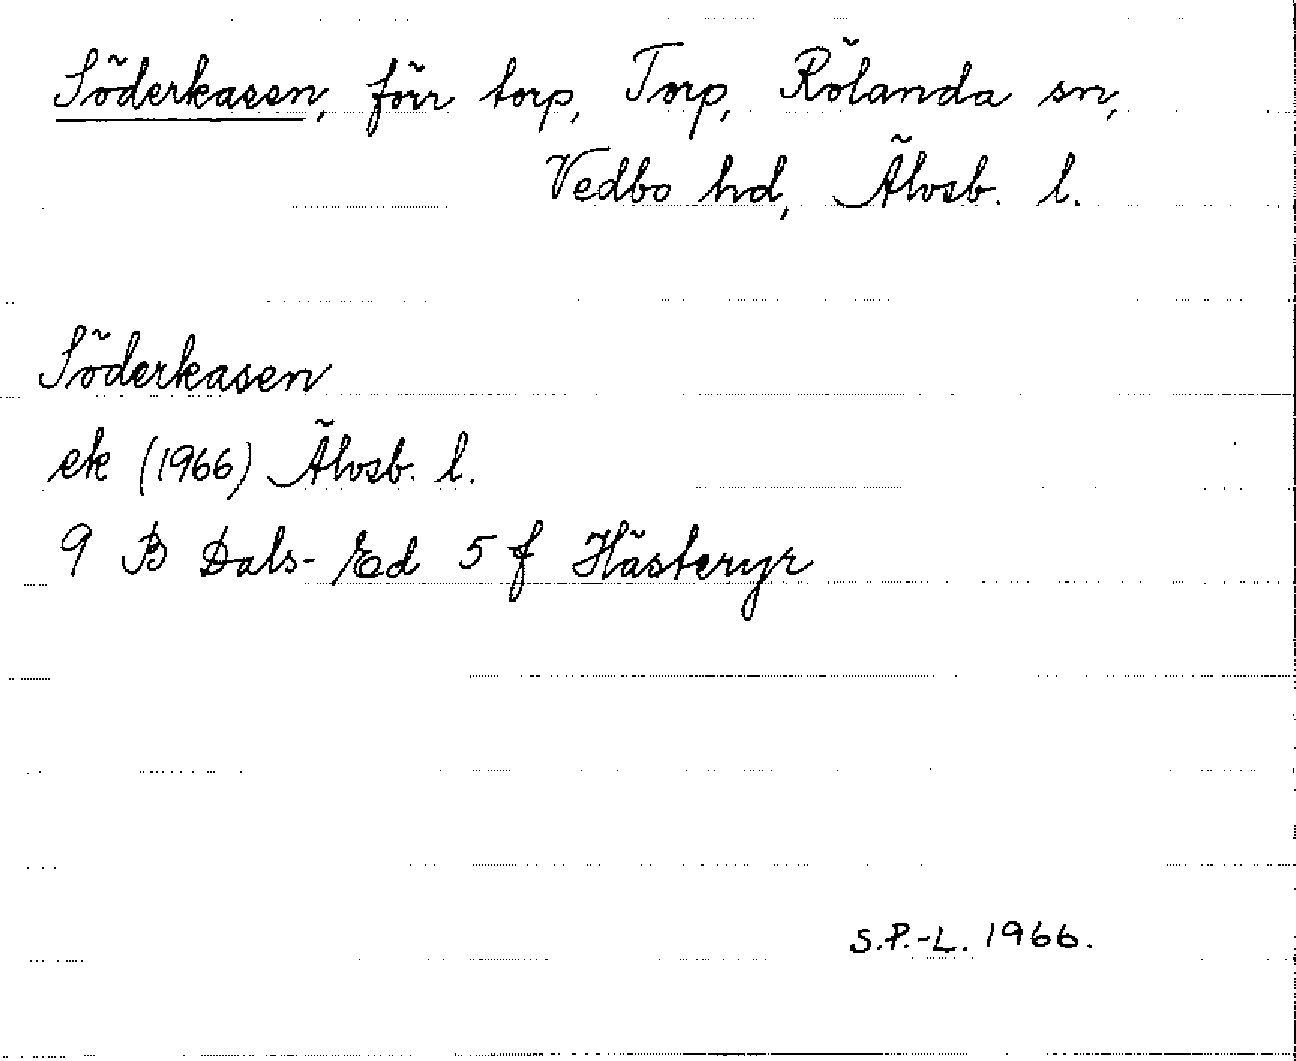 Söderkasen, förr torp, Torp, Rölanda sn,
Vedbo hd, Älvsb. l.
Söderkasen
ek (1966) Älvsb. l.
9 B Dals-Ed 5 f Hästeryr
S.P.-L. 1966.